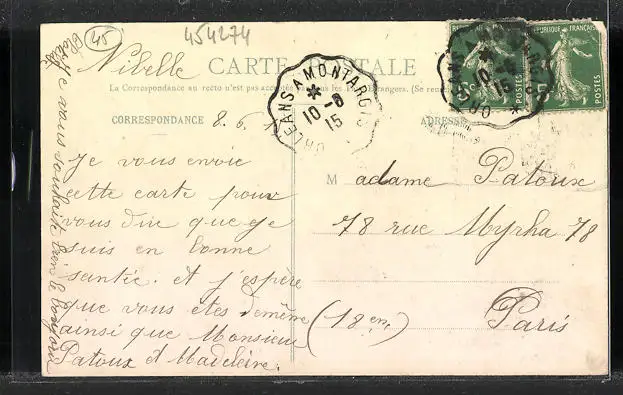 45
454274
Nibelle
CARTE POSTALE
La Correspondance au recto n'est pas acceptée
CORRESPONDANCE
ADRESSE
8.6.
RÉPUBLIQUE FRANÇAISE
POSTES
5c
POSTES
ORLEANS A MONTARGIS
10-6
15
Je vous envoie
cette carte pour
vous dire que je
suis en bonne
santée. et j'espère
que vous êtes de même
ainsi que Monsieur
Patoux et Madeleine.
Madame Patoux
78 rue Myrha 78
Paris
(18eme)
vous souhaite bien le bonjour